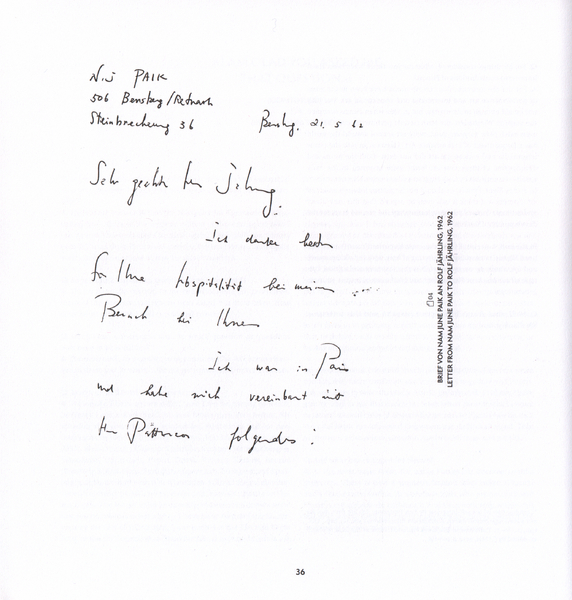 N.J PAIK
506 Bensberg/Refrath
Steinbrecherweg 36
Bensbg. 21. 5 62
Sehr geehrter Herr Jährling.
Ich danke besten
für Ihre Hospitalität bei meinem
Besuch bei Ihnen
Ich war in Paris
und habe mich vereinbart mit
Herr Patterson folgendes:
BRIEF VON NAM JUNE PAIK AN ROLF JÄHRLING, 1962
LETTER FROM NAM JUNE PAIK TO ROLF JÄHRLING, 1962
36